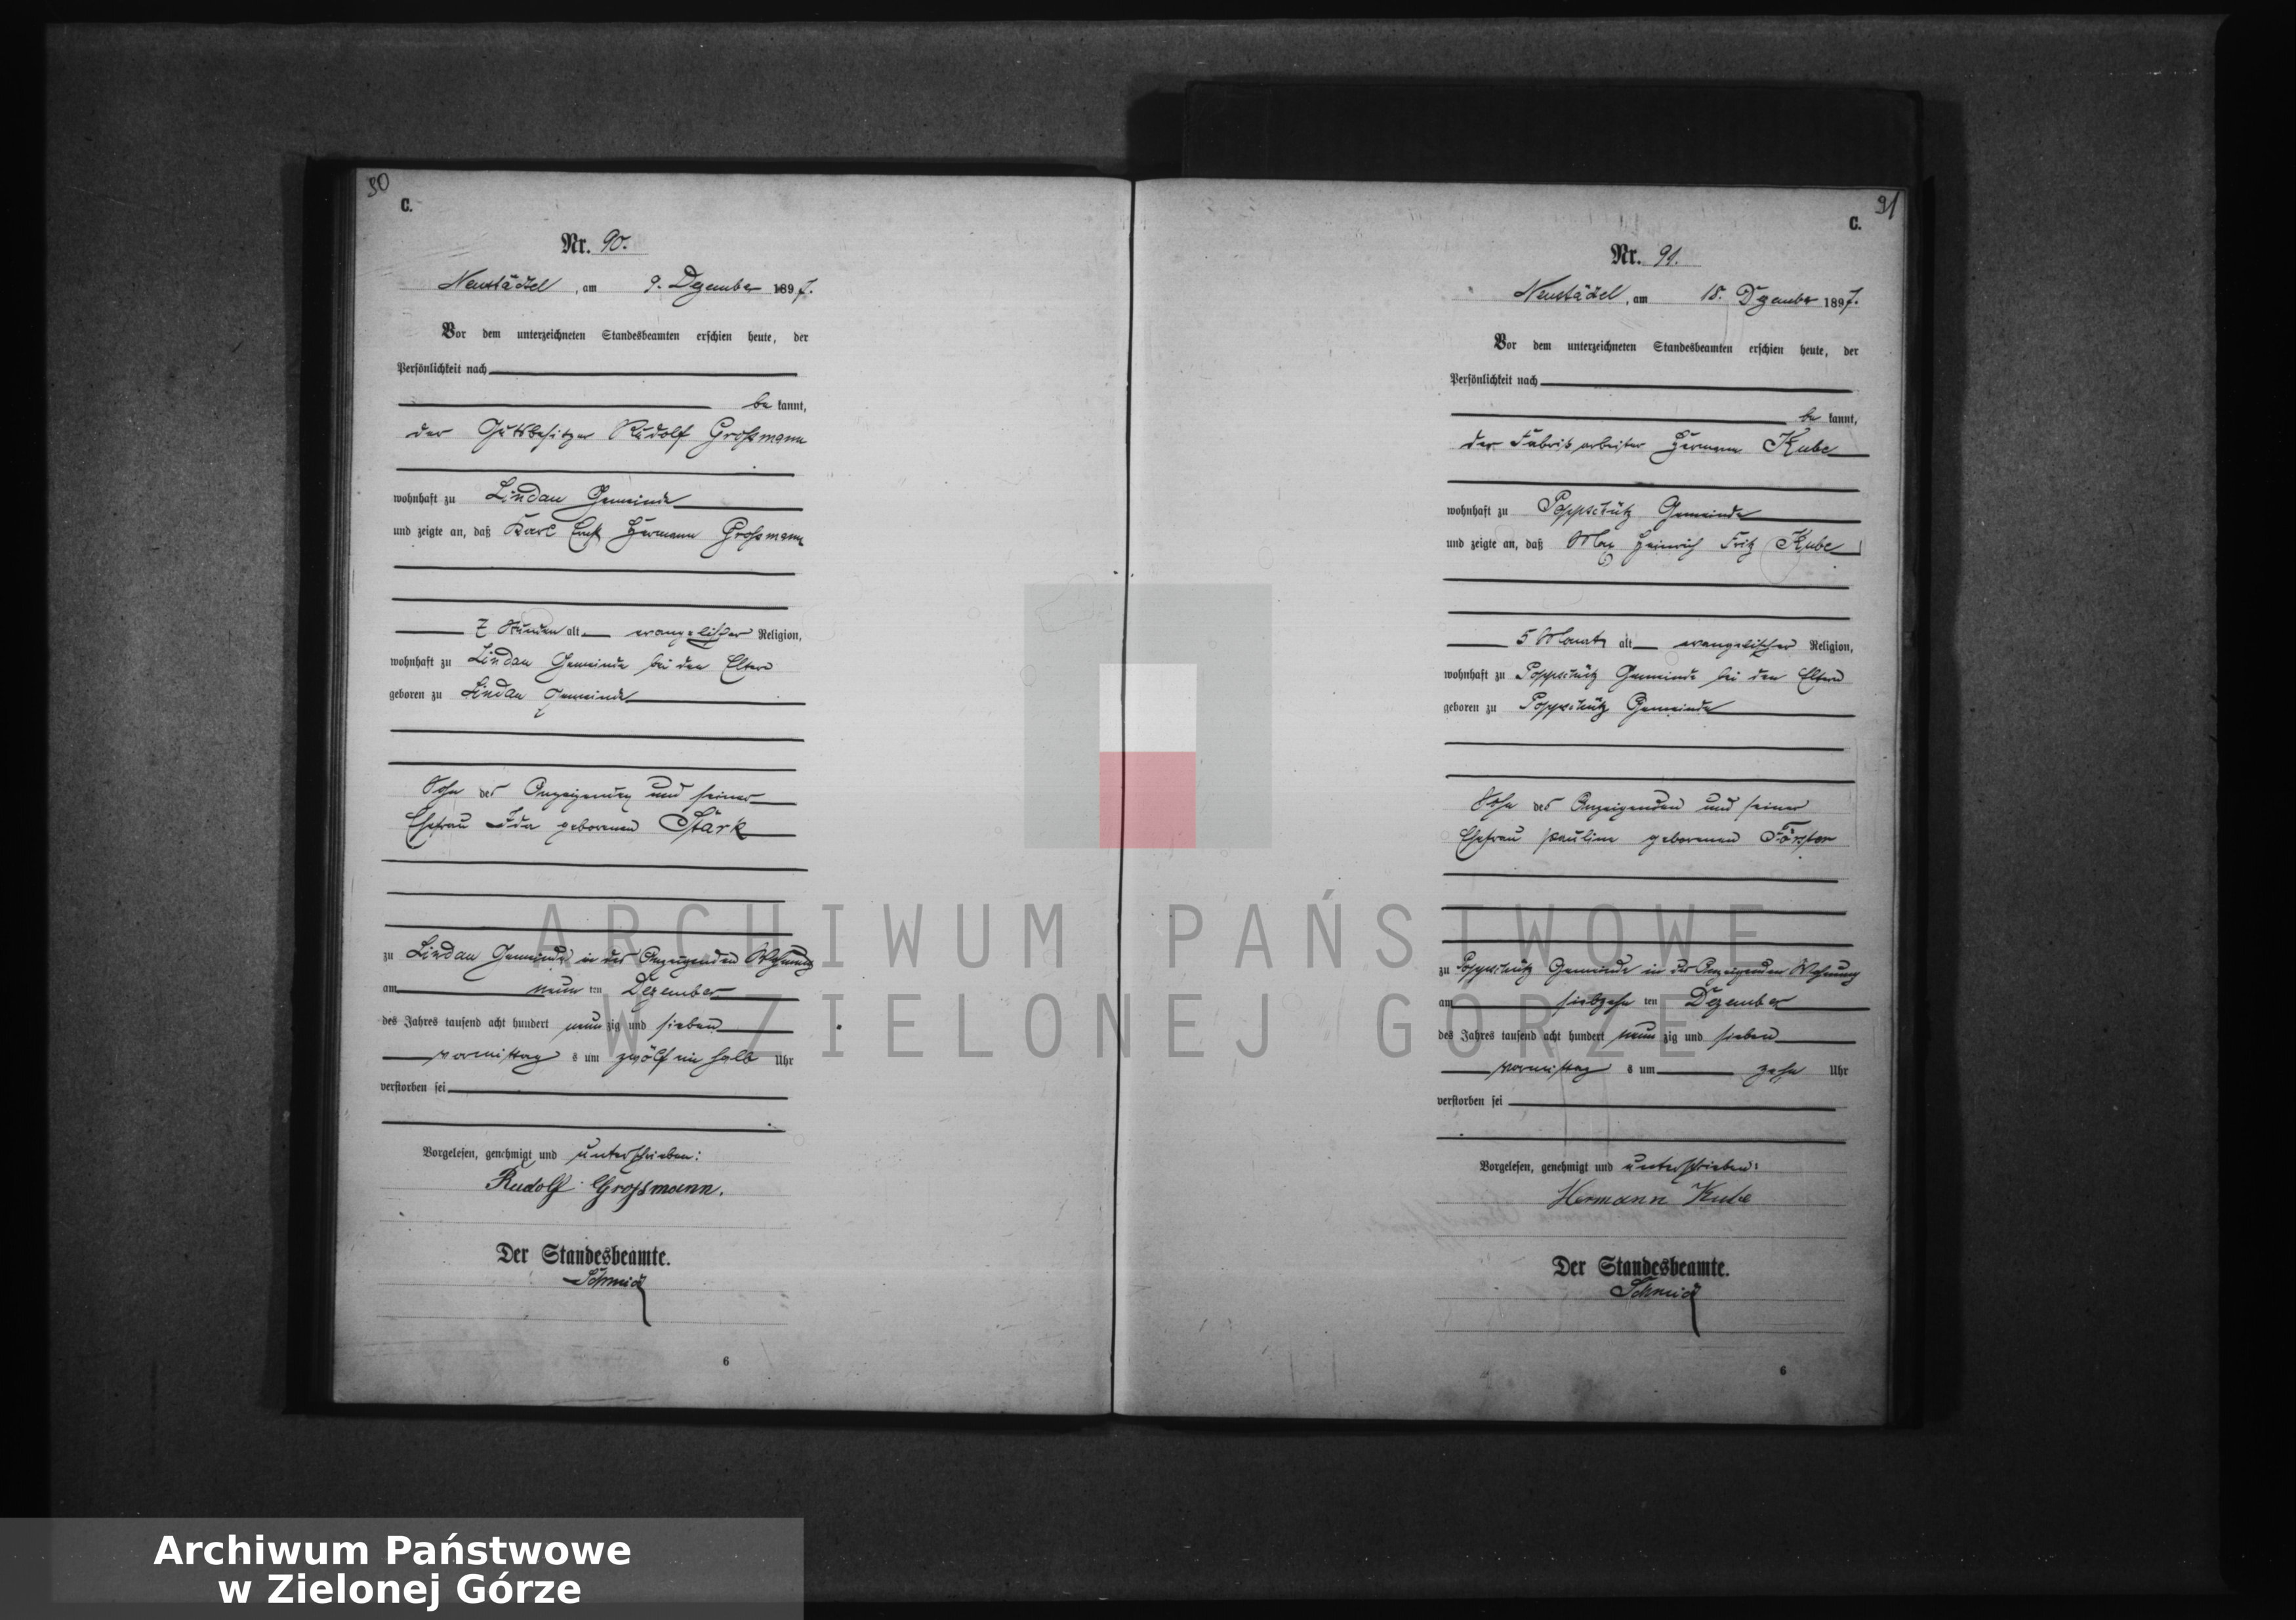 90
C.
Nr. 90.
Neustädtel, am 9. Dezember 1897.
Vor dem unterzeichneten Standesbeamten erschien heute, der
Persönlichkeit nach
be kannt,
der Gutsbesitzer Rudolf Großmann
wohnhaft zu Lindau Gemeinde
und zeigte an, daß Karl Ernst Hermann Großmann
7 Stunden alt evangelischer Religion,
wohnhaft zu Lindau Gemeinde bei den Eltern
geboren zu Lindau Gemeinde
Sohn des Anzeigenden und seiner
Ehefrau Ida geborenen Stark
zu Lindau Gemeinde in des Anzeigenden Wohnung
am neun ten Dezember
des Jahres tausend acht hundert neun zig und sieben
vormittag s um zwölf ein halb Uhr
verstorben sei
Vorgelesen, genehmigt und unterschrieben:
Rudolf Großmann.
Der Standesbeamte.
Schmidt
6
91
C.
Nr. 91.
Neustädtel, am 18. Dezember 1897.
Vor dem unterzeichneten Standesbeamten erschien heute, der
Persönlichkeit nach
be kannt,
der Fabrikarbeiter Hermann Kube
wohnhaft zu Poppschütz Gemeinde
und zeigte an, daß Max Heinrich Fritz Kube
5 Monate alt evangelischer Religion,
wohnhaft zu Poppschütz Gemeinde bei den Eltern
geboren zu Poppschütz Gemeinde
Sohn des Anzeigenden und seiner
Ehefrau Pauline geborenen Förster
zu Poppschütz Gemeinde in des Anzeigenden Wohnung
am siebzehn ten Dezember
des Jahres tausend acht hundert neun zig und sieben
vormittag s um zehn Uhr
verstorben sei
Vorgelesen, genehmigt und unterschrieben:
Hermann Kube
Der Standesbeamte.
Schmidt
6
ARCHIWUM PAŃSTWOWE
W ZIELONEJ GÓRZE
Archiwum Państwowe
w Zielonej Górze